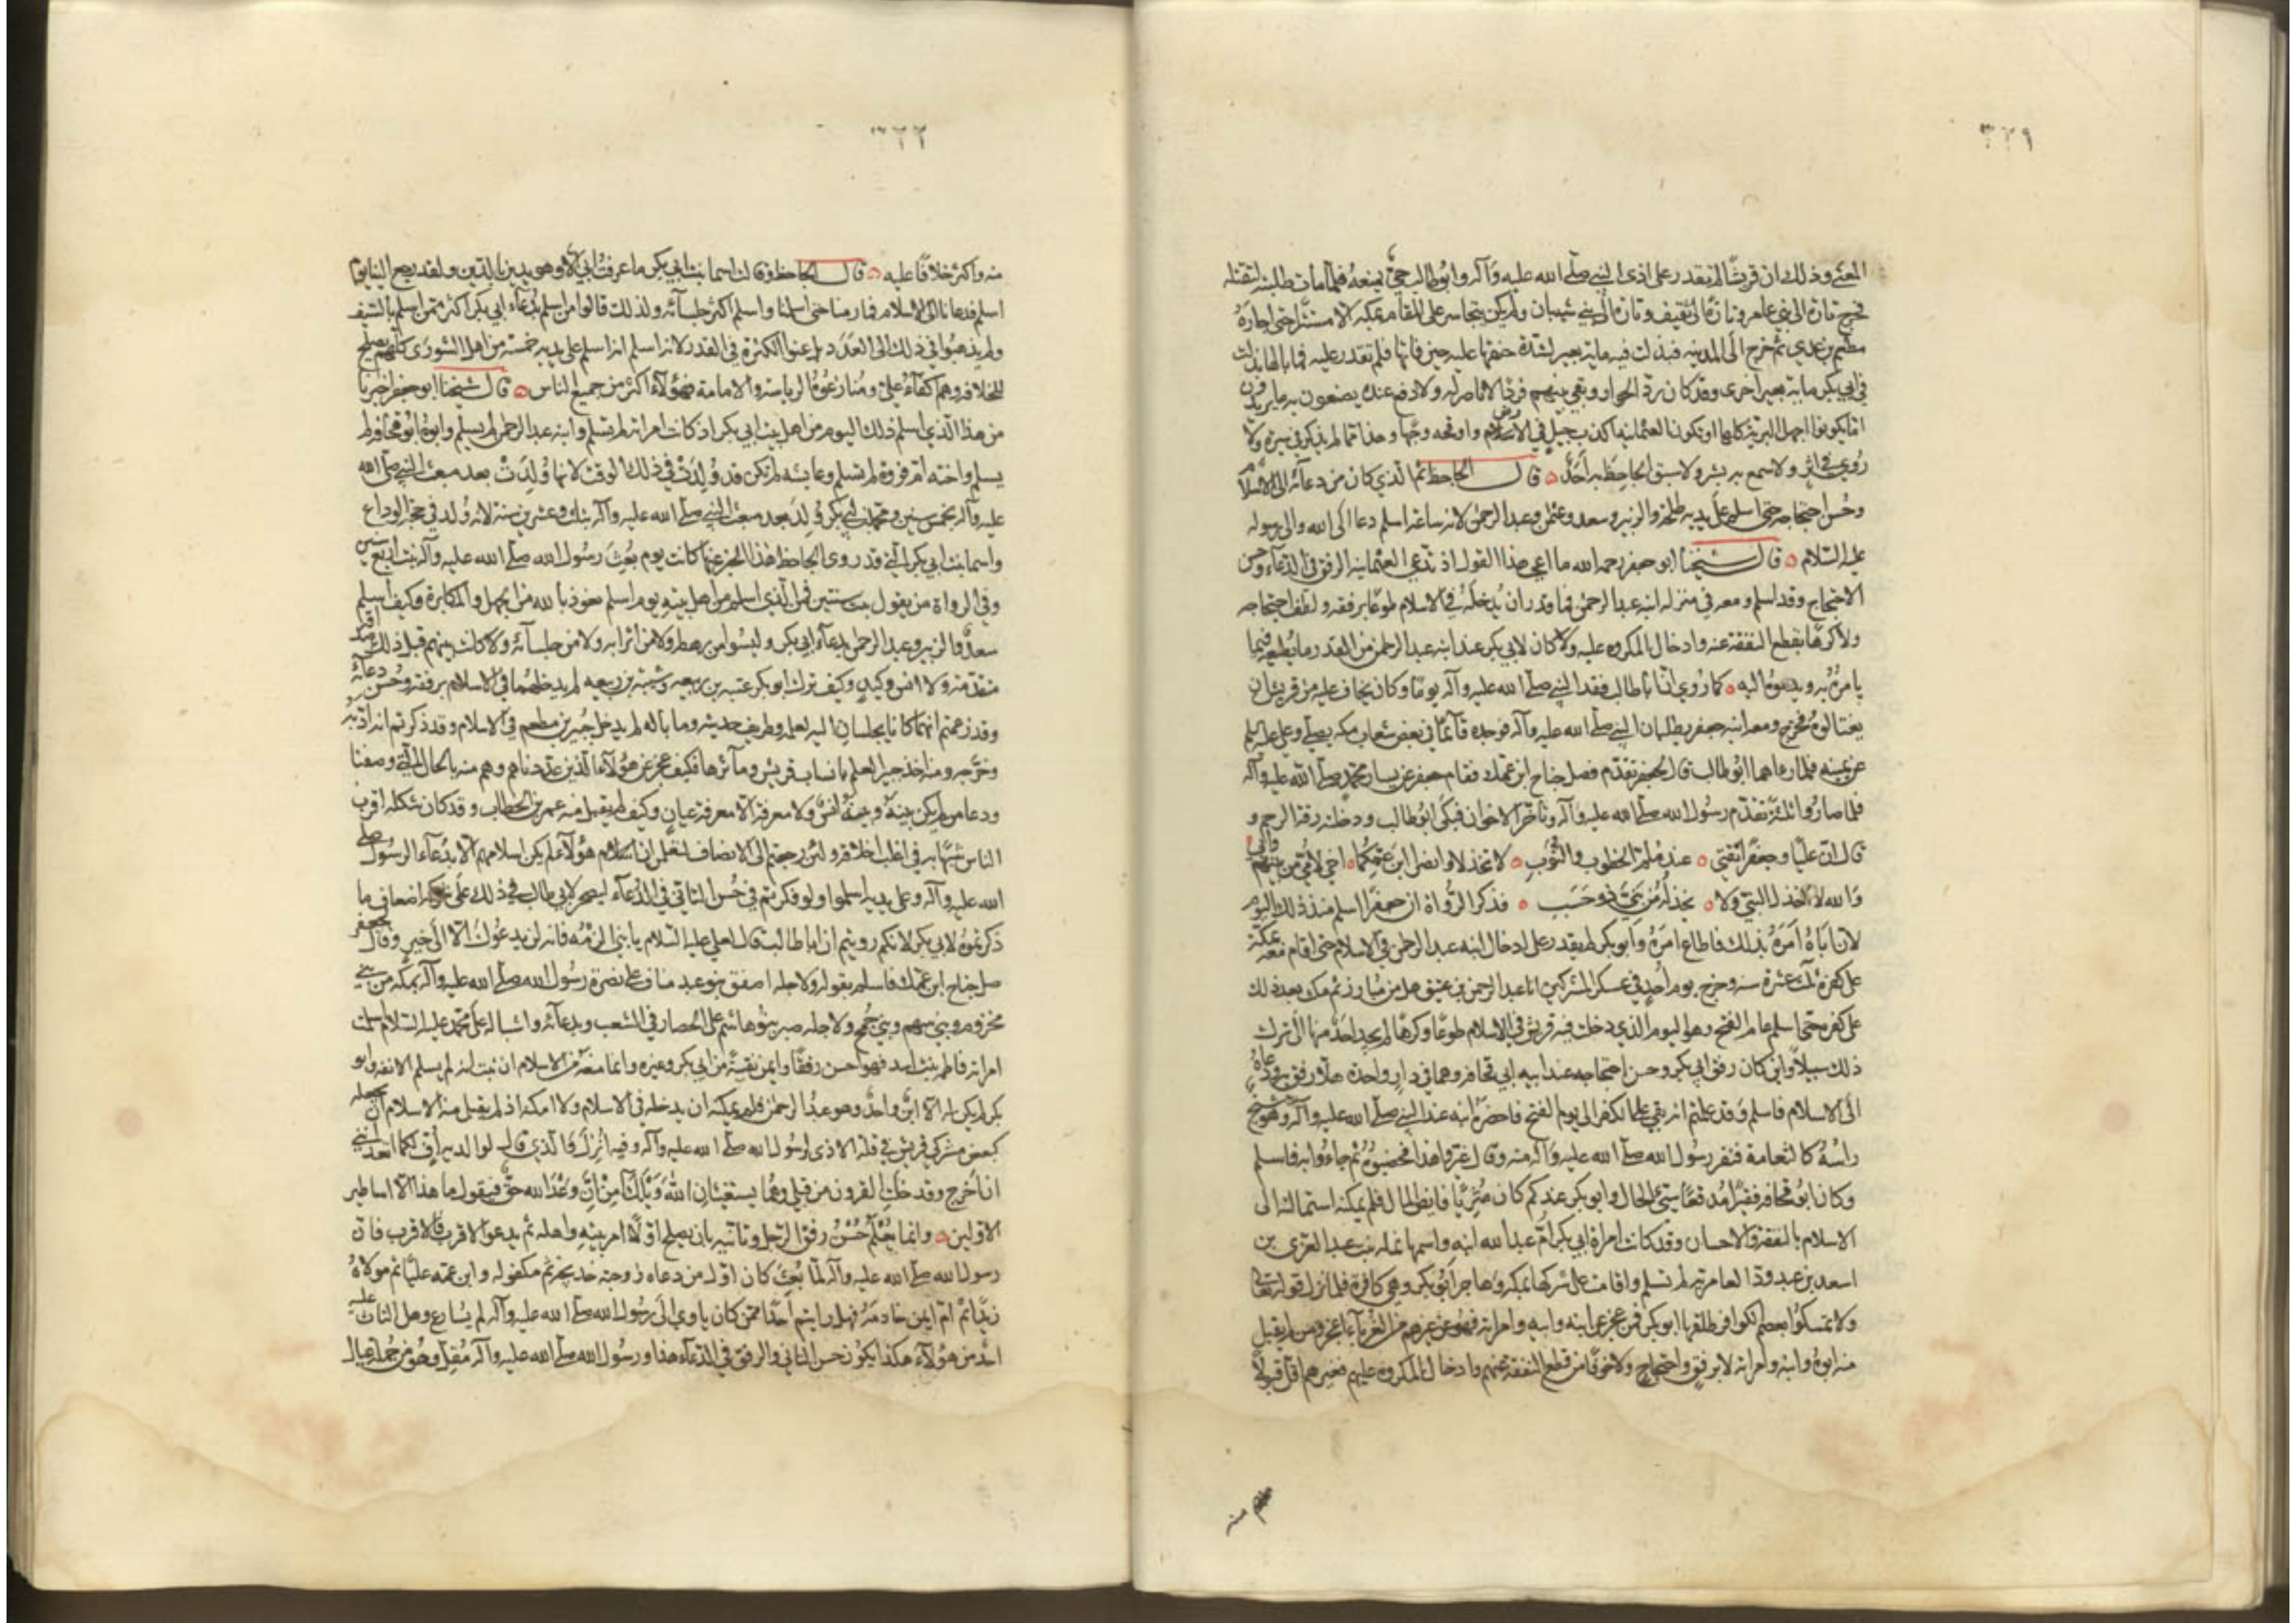 ٣٢٩
المعنى وذلك ان قريشا لم تقدر على اذى النبي صلى الله عليه وآله وابو طالب حي يمنعه فلما مات طلبته لتقتله
فخرج تارة الى بني عامر وتارة الى ثقيف وتارة الى بني شيبان ولم يكن يتجاسر على المقام بمكة الا مستترا حتى اجاره
مطعم بن عدي ثم خرج الى المدينة فبذلت فيه ماية بعير لشدة حنقها عليه حين فاتها فلم تقدر عليه فما بالها بذلت
في ابي بكر ماية بعير اخرى وقد كان رد الجوار وبقي بينهم فردا لا ناصر له ولا دافع عنده يصنعون به ما يريدون
اما ان يكونوا اجهل البرية كلها او تكون العثمانية اكذب جيل في الارض واوقحه وجها وهذا مما لم يذكر في سيرة ولا
روي في اثر ولا سمع به بشر ولا سبق الجاحظ به احد ٥ قال الجاحظ ثم الذي كان من دعائه الى الاسلام
وحسن احتجاجه حتى اسلم على يديه طلحة والزبير وسعد وعثمن وعبد الرحمن لانه ساعة اسلم دعا الى الله والى رسوله
عليه السلام ٥ قال شيخنا ابو جعفر رحمه الله ما اعجب هذا القول اذ تدعي العثمانية الرفق في الدعاء وحسن
الاحتجاج وقد اسلم ومعه في منزله ابنه عبد الرحمن فما قدر ان يدخله في الاسلام طوعا برفقه ولطف احتجاجه
ولا كرها بقطع النفقة عنه وادخال المكروه عليه ولا كان لابي بكر عند ابنه عبد الرحمن من القدر ما يطيعه فيما
يامره به ويدعوه اليه ٥ كما روي ان ابا طالب فقد النبي صلى الله عليه وآله يوما وكان يخاف عليه من قريش ان
يغتالوه فخرج ومعه ابنه جعفر يطلبان النبي صلى الله عليه وآله فوجده قائما في بعض شعاب مكة يصلي وعلي عليه السلم
عن يمينه فلما رءاهما ابو طالب قال لجعفر تقدم فصل جناح ابن عمك فقام جعفر عن يسار محمد صلى الله عليه وآله
فلما صاروا ثلثة تقدم رسول الله صلى الله عليه وآله وتاخر الاخوان فبكى ابو طالب ودخلته رقة الرحم و
قال ان عليا وجعفرا ثقتي ٥ عند ملم الخطوب والنوب ٥ لا تخذلا وانصرا ابن عمكما ٥ اخي لامي من بينهم وابي ٥
والله لا اخذل النبي ولا ٥ يخذله من بني ذو حسب ٥ فذكر الرواة ان جعفرا اسلم منذ ذلك اليوم
لان اباه امره بذلك فاطاع امره وابو بكر لم يقدر على ادخال ابنه عبد الرحمن في الاسلام حتى اقام بمكة
على كفره ثلث عشرة سنة وخرج يوم احد في عسكر المشركين انا عبد الرحمن بن عتيق هل من مبارز ثم مكث بعد ذلك
على كفره حتى اسلم عام الفتح وهو اليوم الذي دخلت فيه قريش في الاسلام طوعا وكرها لم يجد احد منها الى ترك
ذلك سبيلا واين كان رفق ابي بكر وحسن احتجاجه عند ابيه ابي قحافة وهما في دار واحدة هلا رفق به ودعاه
الى الاسلام فاسلم وقد علمتم انه بقي على الكفر الى يوم الفتح فاحضره ابنه عند النبي صلى الله عليه وآله وهو شيخ
راسه كالثغامة فنفر رسول الله صلى الله عليه وآله منه وقال غيروا هذا فخضبوه ثم جاءوا به فاسلم
وكان ابو قحافة فقيرا مدقعا سيئ الحال وابو بكر عندكم كان مثريا فايض المال فلم يمكنه استمالته الى
الاسلام بالنفقة والاحسان وقد كانت امراة ابي بكر ام عبد الله ابنه واسمها نملة بنت عبد العزى بن
اسعد بن عبد ود العامرية لم تسلم واقامت على شركها بمكة وهاجر ابو بكر وهي كافرة فلما نزل قوله تعالى
ولا تمسكوا بعصم الكوافر طلقها ابو بكر فمن عجز عن ابنه وابيه وامراته فهو عن غيرهم من الغرباء اعجز ومن لم يقبل
منه ابوه وابنه وامراته لا برفق واحتجاج ولا خوفا من قطع النفقة عنهم وادخال المكروه عليهم فغيرهم اقل قبولا
منه
منه واكثر خلافا عليه ٥ قال الجاحظ وقالت اسما بنت ابي بكر ما عرفت ابي الا وهو يدين بالدين ولقد رجع الينا يوم
اسلم فدعانا الى الاسلام فما رمنا حتى اسلمنا واسلم اكثر جلسائه ولذلك قالوا من اسلم بدعاء ابي بكر اكثر ممن اسلم بالسيف
ولم يذهبوا في ذلك الى العدد بل عنوا الكثرة في القدر لانه اسلم على يديه خمسة من اهل الشورى كلهم يصلح
للخلافة وهم اكفاء علي ومنازعوه الرياسة والامامة فهؤلاء اكثر من جميع الناس ٥ قال شيخنا ابو جعفر اخبرنا
من هذا الذي اسلم ذلك اليوم من اهل بيت ابي بكر اذ كانت امراته لم تسلم وابنه عبد الرحمن لم يسلم وابوه ابو قحافة لم
يسلم واخته ام فروة لم تسلم وعايشة لم تكن قد ولدت في ذلك الوقت لانها ولدت بعد مبعث النبي صلى الله
عليه وآله بخمس سنين ومحمد بن ابي بكر ولد بعد مبعث النبي صلى الله عليه وآله بثلث وعشرين سنة لانه ولد في حجة الوداع
واسما بنت ابي بكر التي قد روى الجاحظ هذا الخبر عنها كانت يوم بعث رسول الله صلى الله عليه وآله بنت اربع سنين
وفي الرواة من يقول بنت سنتين فمن الذي اسلم من اهل بيته يوم اسلم نعوذ بالله من الجهل والمكابرة وكيف اسلم
سعد والزبير وعبد الرحمن بدعاء ابي بكر وليسوا من رهطه ولا من اترابه ولا من جلسائه ولا كانت بينهم قبل ذلك صداقة
متقدمة ولا انس وكيد وكيف ترك ابو بكر عتبة بن ربيعة وشيبة بن ربيعة لم يدخلهما في الاسلام برفقه وحسن دعائه
وقد زعمتم انهما كانا يجلسان اليه لعلمه وطريف حديثه وما باله لم يدخل جبير بن مطعم في الاسلام وقد ذكرتم انه ادبه
وخرجه ومنه اخذ جبير العلم بانساب قريش ومآثرها فكيف عجز عن هؤلاء الذين عددناهم وهم منه بالحال التي وصفنا
ودعا من لم يكن بينه وبينه انس ولا معرفة الا معرفة عيان وكيف لم يقبل منه عمر بن الخطاب وقد كان شكله اقرب
الناس شبها به في اغلب اخلاقه ولئن رجعتم الى الانصاف لتعلمن ان هؤلاء لم يكن اسلامهم الا بدعاء الرسول صلى
الله عليه وآله وعلى يديه اسلموا ولو فكرتم في حسن التاتي في الدعاء ليصح لابي طالب في ذلك على شركه اضعاف ما
ذكرتموه لابي بكر لانكم رويتم ان ابا طالب قال لعلي عليه السلام يا بني الزمه فانه لن يدعوك الا الى خير وقال لجعفر
صل جناح ابن عمك فاسلم بقوله ولاجله اصفق بنو عبد مناف على نصرة رسول الله صلى الله عليه وآله بمكة من بني
مخزوم وبني سهم وبني جمح ولاجله صبر بنو هاشم على الحصار في الشعب وبدعائه واقباله على محمد عليه السلام اسلمت
امراته فاطمة بنت اسد فهو احسن رفقا وايمن نقيبة من ابي بكر وغيره وانما منعه من الاسلام ان ثبت انه لم يسلم الا تقية وابو
بكر لم يكن له الا ابن واحد وهو عبد الرحمن فلم يمكنه ان يدخله في الاسلام ولا امكنه اذ لم يقبل منه الاسلام ان يجعله
كبعض مشركي قريش في قلة الاذى لرسول الله صلى الله عليه وآله وفيه انزل والذي قال لوالديه اف لكما اتعدانني
ان اخرج وقد خلت القرون من قبلي وهما يستغيثان الله ويلك آمن ان وعد الله حق فيقول ما هذا الا اساطير
الاولين ٥ وانما يعلم حسن رفق الرجل وتاتيه بان يصلح اولا امر بيته واهله ثم يدعو الاقرب فالاقرب فان
رسول الله صلى الله عليه وآله لما بعث كان اول من دعاه زوجته خديجة ثم مكفوله وابن عمه عليا ثم مولاه
زيدا ثم ام ايمن خادمته فهل رايتم احدا ممن كان ياوي الى رسول الله صلى الله عليه وآله لم يسارع وهل التاث عليه
احد من هؤلاء هكذا يكون حسن التاتي والرفق في الدعاء هذا ورسول الله صلى الله عليه وآله مقل وهو من جملة عيال